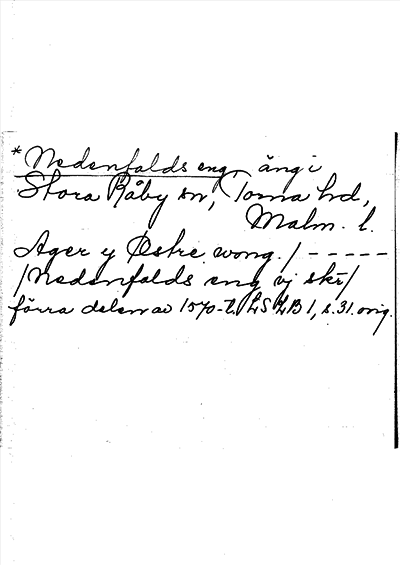 *Nedenfalds eng, äng i
Stora Råby sn, Torna hd,
Malm. l.
Ager y Østre wong. / - - - - -
/ Nedenfalds eng vj skr /
förra delen av 1570-t. LSLB 1, s. 31. orig.